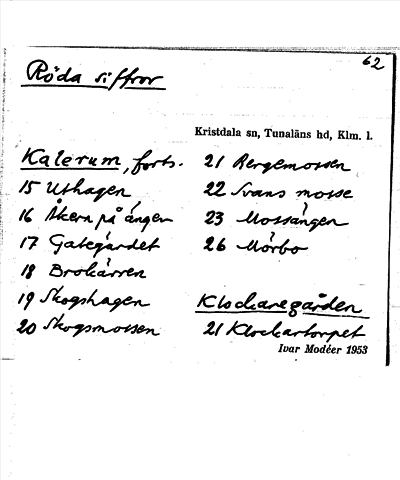 62
Röda siffror
Kristdala sn, Tunaläns hd, Klm. l.
Kalerum, forts.
15 Uthagen
16 Åkern på ängen
17 Gategärdet
18 Brokärren
19 Skogshagen
20 Skogsmossen
21 Bergemossen
22 Svans mosse
23 Mossängen
26 Mörbo
Klockaregården
21 Klockartorpet
Ivar Modéer 1953